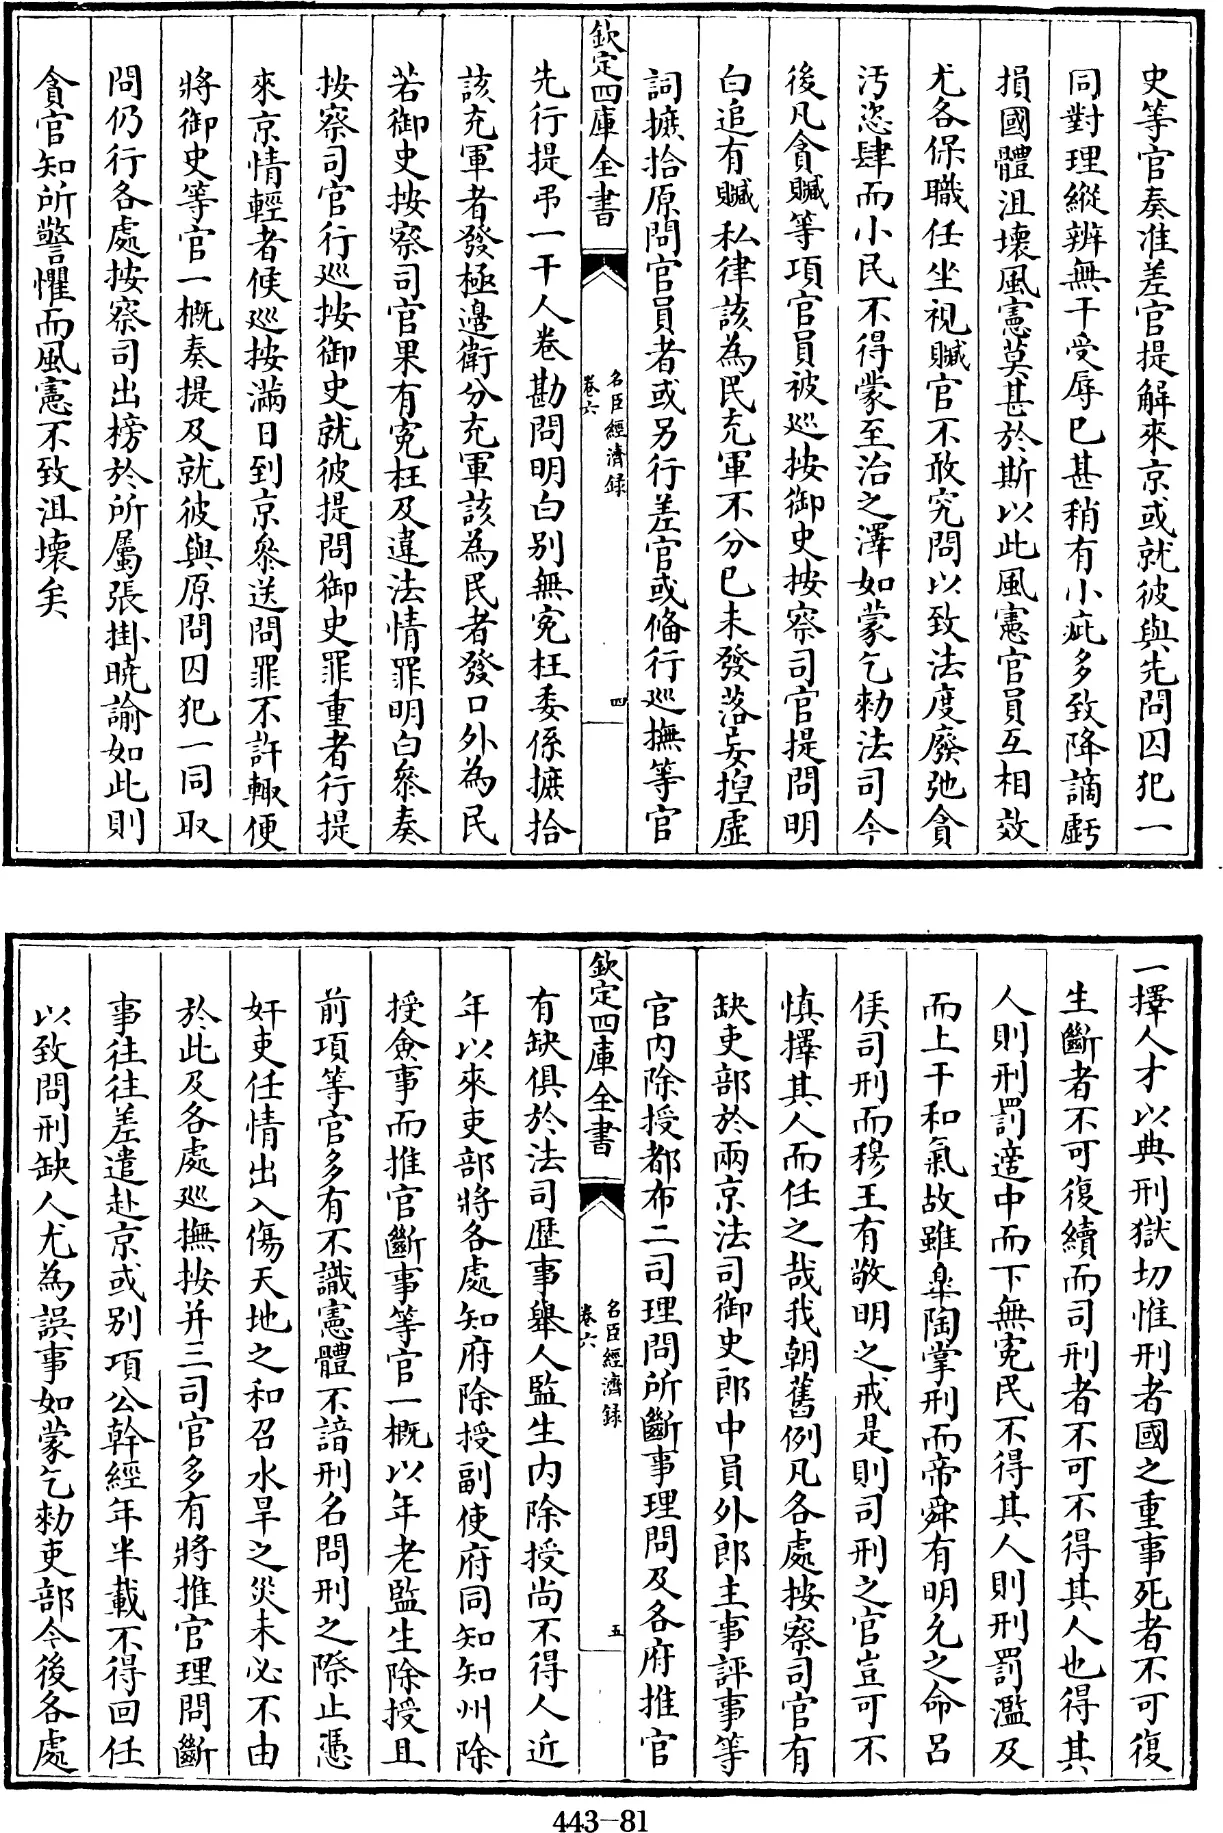 史等官奏准差官提解來京或就彼與先問囚犯一
同對理縱辨無干受辱已甚稍有小疵多致降謫虧
損國體沮壞風憲莫甚於斯以此風憲官員互相效
尤各保職任坐視贓官不敢究問以致法度廢弛貪
汚恣肆而小民不得蒙至治之澤如蒙乞勅法司今
後凡貪贓等項官員被巡按御史按察司官提問明
白追有贓私律該為民充軍不分已未發落妄揑虛
詞摭拾原問官員者或另行差官或備行巡撫等官
欽定四庫全書
名臣經濟録
卷六
四
先行提弔一干人卷勘問明白别無寃枉委係摭拾
該充軍者發極邉衛分充軍該為民者發口外為民
若御史按察司官果有寃枉及違法情罪明白叅奏
按察司官行巡按御史就彼提問御史罪重者行提
來京情輕者候巡按滿日到京叅送問罪不許輙便
將御史等官一概奏提及就彼與原問囚犯一同取
問仍行各處按察司出榜於所屬張掛曉諭如此則
貪官知所警懼而風憲不致沮壞矣
一擇人才以典刑獄切惟刑者國之重事死者不可復
生斷者不可復續而司刑者不可不得其人也得其
人則刑罰適中而下無寃民不得其人則刑罰濫及
而上干和氣故雖臯陶掌刑而帝舜有明允之命吕
侯司刑而穆王有敬明之戒是則司刑之官豈可不
慎擇其人而任之哉我朝舊例凡各處按察司官有
缺吏部於兩京法司御史郎中員外郎主事評事等
官内除授都布二司理問所斷事理問及各府推官
欽定四庫全書
名臣經濟録
卷六
五
有缺俱於法司歴事舉人監生内除授尚不得人近
年以來吏部將各處知府除授副使府同知知州除
授僉事而推官斷事等官一概以年老監生除授且
前項等官多有不識憲體不諳刑名問刑之際止憑
奸吏任情出入傷天地之和召水旱之災未必不由
於此及各處巡撫按并三司官多有將推官理問斷
事往往差遣赴京或别項公幹經年半載不得回任
以致問刑缺人尤為誤事如蒙乞勅吏部今後各處
443-81